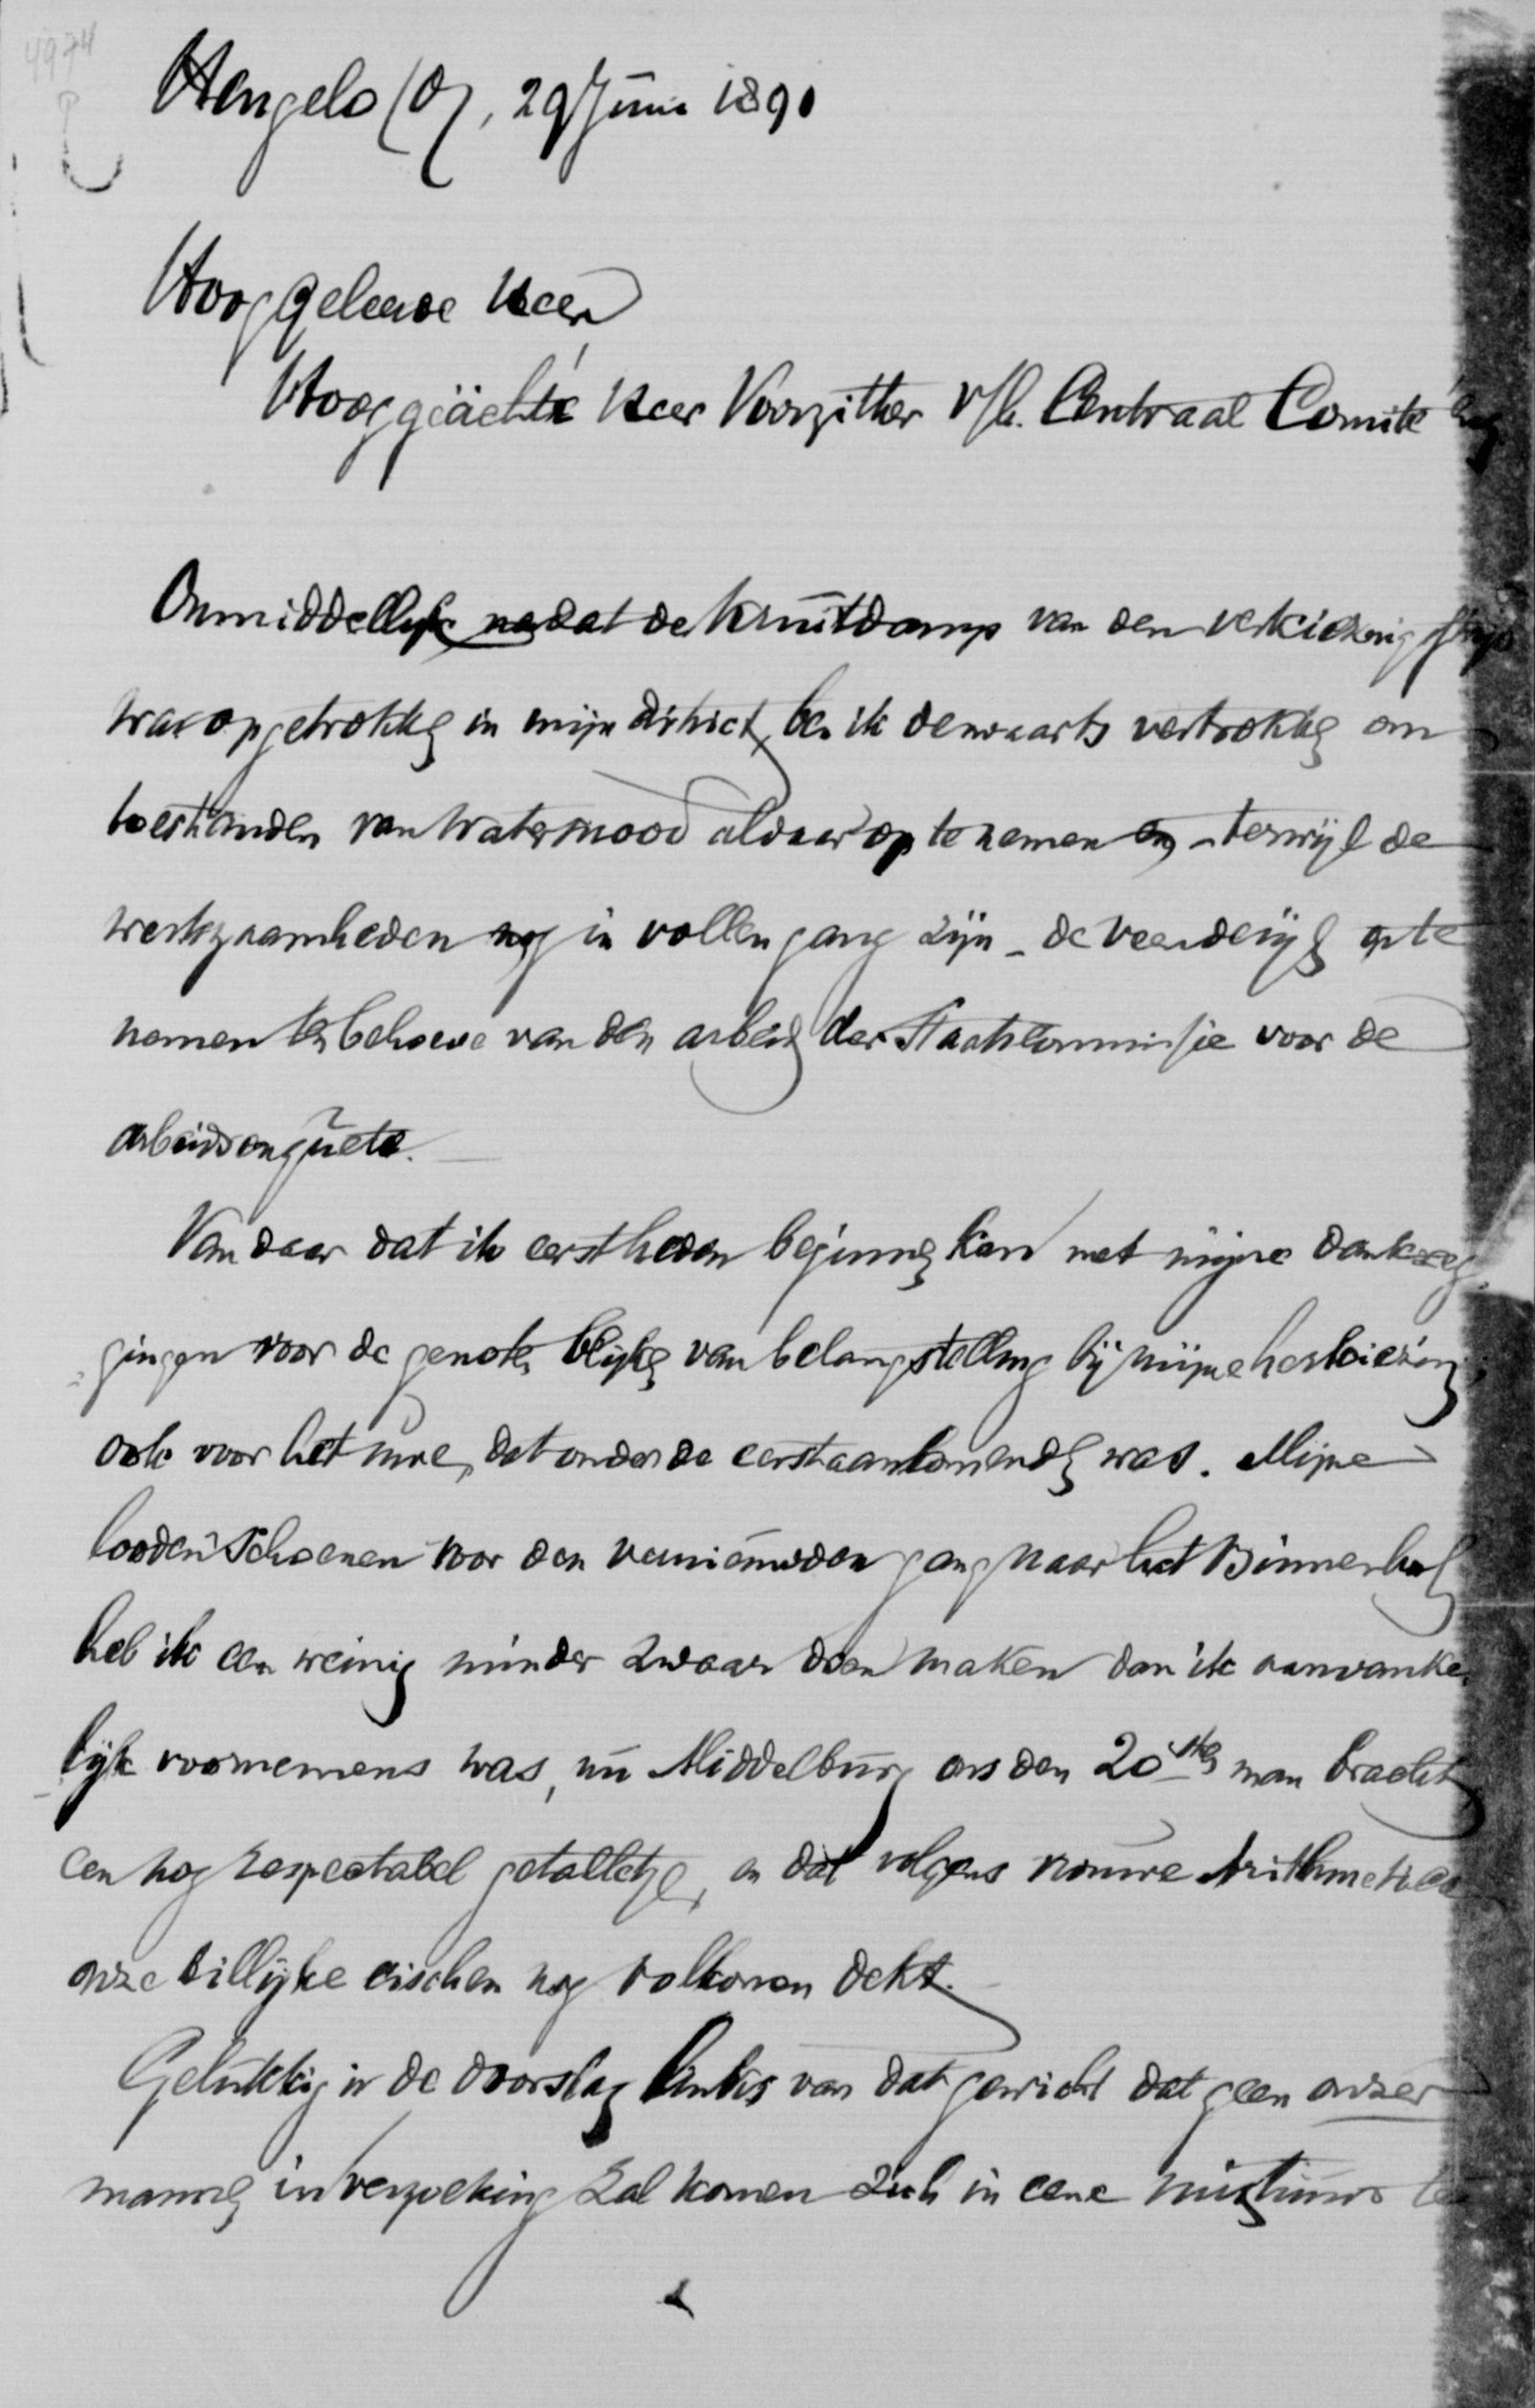 4974
Hengelo (O), 29 Juni 1891
Hooggeleerde Heer
Hooggeächte Heer Voorzitter v/h. Centraal Comité
Onmiddellijk nadat de kruitdamp van den verkiezingsstrijd
was opgetrokken in mijn district, ben ik derwaarts vertrokken om
toestanden van watersnood aldaar op te nemen en - terwijl de
werkzaamheden nog in vollen gang zijn - de veenderijen op te
nemen ten behoeve van den arbeid der Staatscommissie voor de
arbeidsenquête.
Van daar dat ik eerst heden beginnen kan met mijne dankzeg
gingen voor de genoten blijken van belangstelling bij mijne herkiezing;
ook voor het uwe, dat onder de eerstaankomenden was. Mijne
looden schoenen voor den vernieuwden gang naar het Binnenhof
heb ik een weinig minder zwaar doen maken dan ik aanvanke
lijk voornemens was, nu Middelburg ons den 20sten man bracht,
een nog respectabel getalletje, en dat volgens nouvre Arithmetica
onze billijke eischen nog volkomen dekt.
Gelukkig is de doorslag links van dat gewicht dat geen onzer
mannen in verzoeking zal komen zich in eene